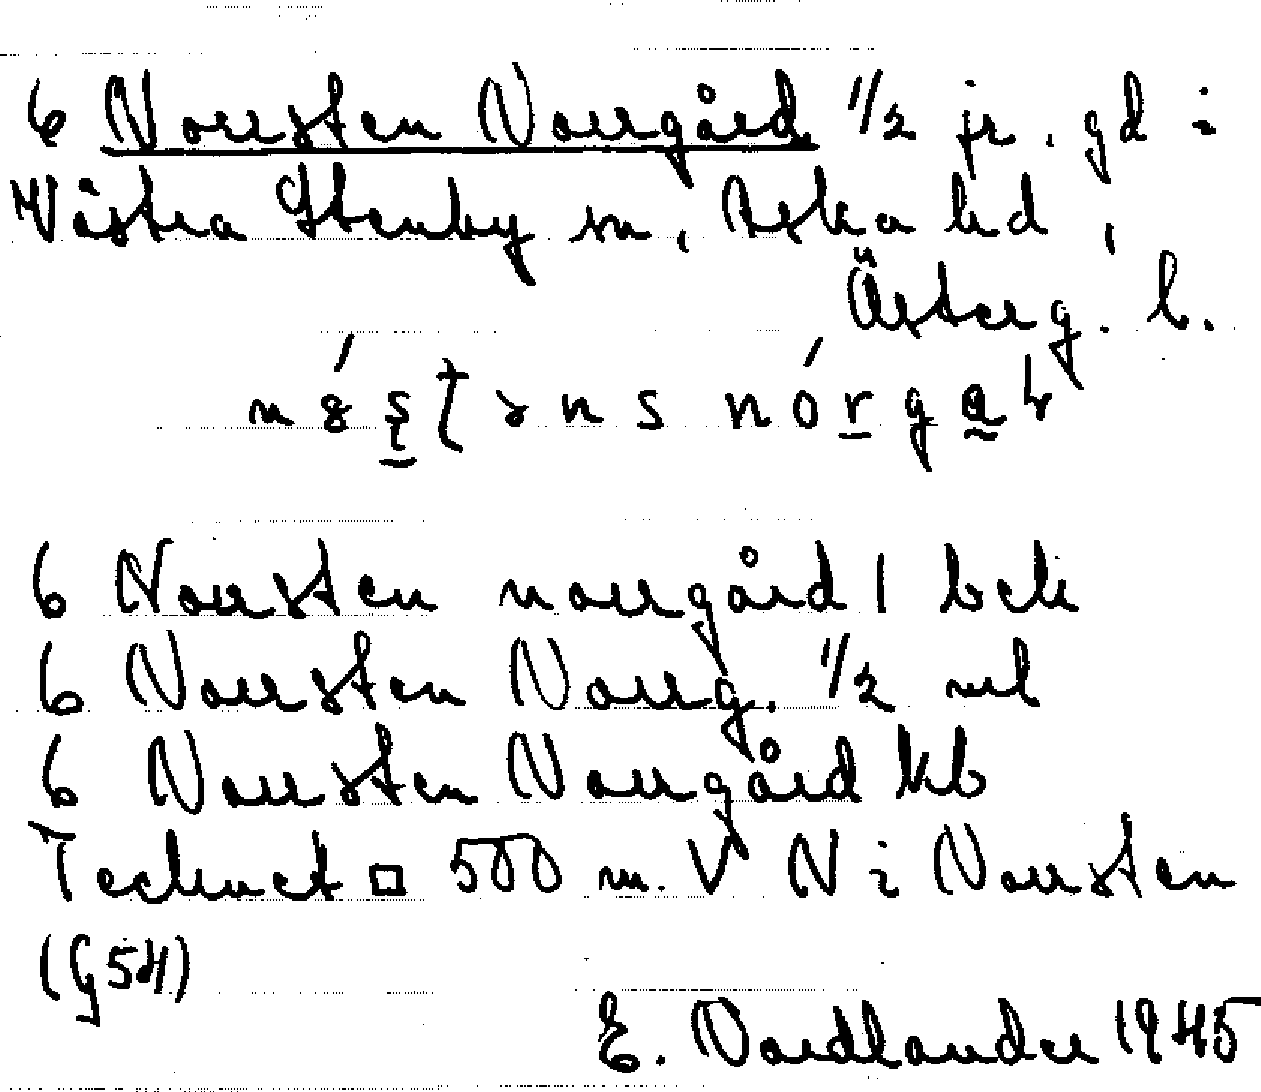 6 Norrsten Norrgård 1/2 jr. gd i
Västra Stenby sn, Aska hd,
Österg. l.
6 Norrsten norrgård 1 beb
6 Norrsten Norrg. 1/2 ml
6 Norrsten Norrgård kb
Tecknet □ 500 m. V N i Norrsten
(G54)
E. Nordlander 1945